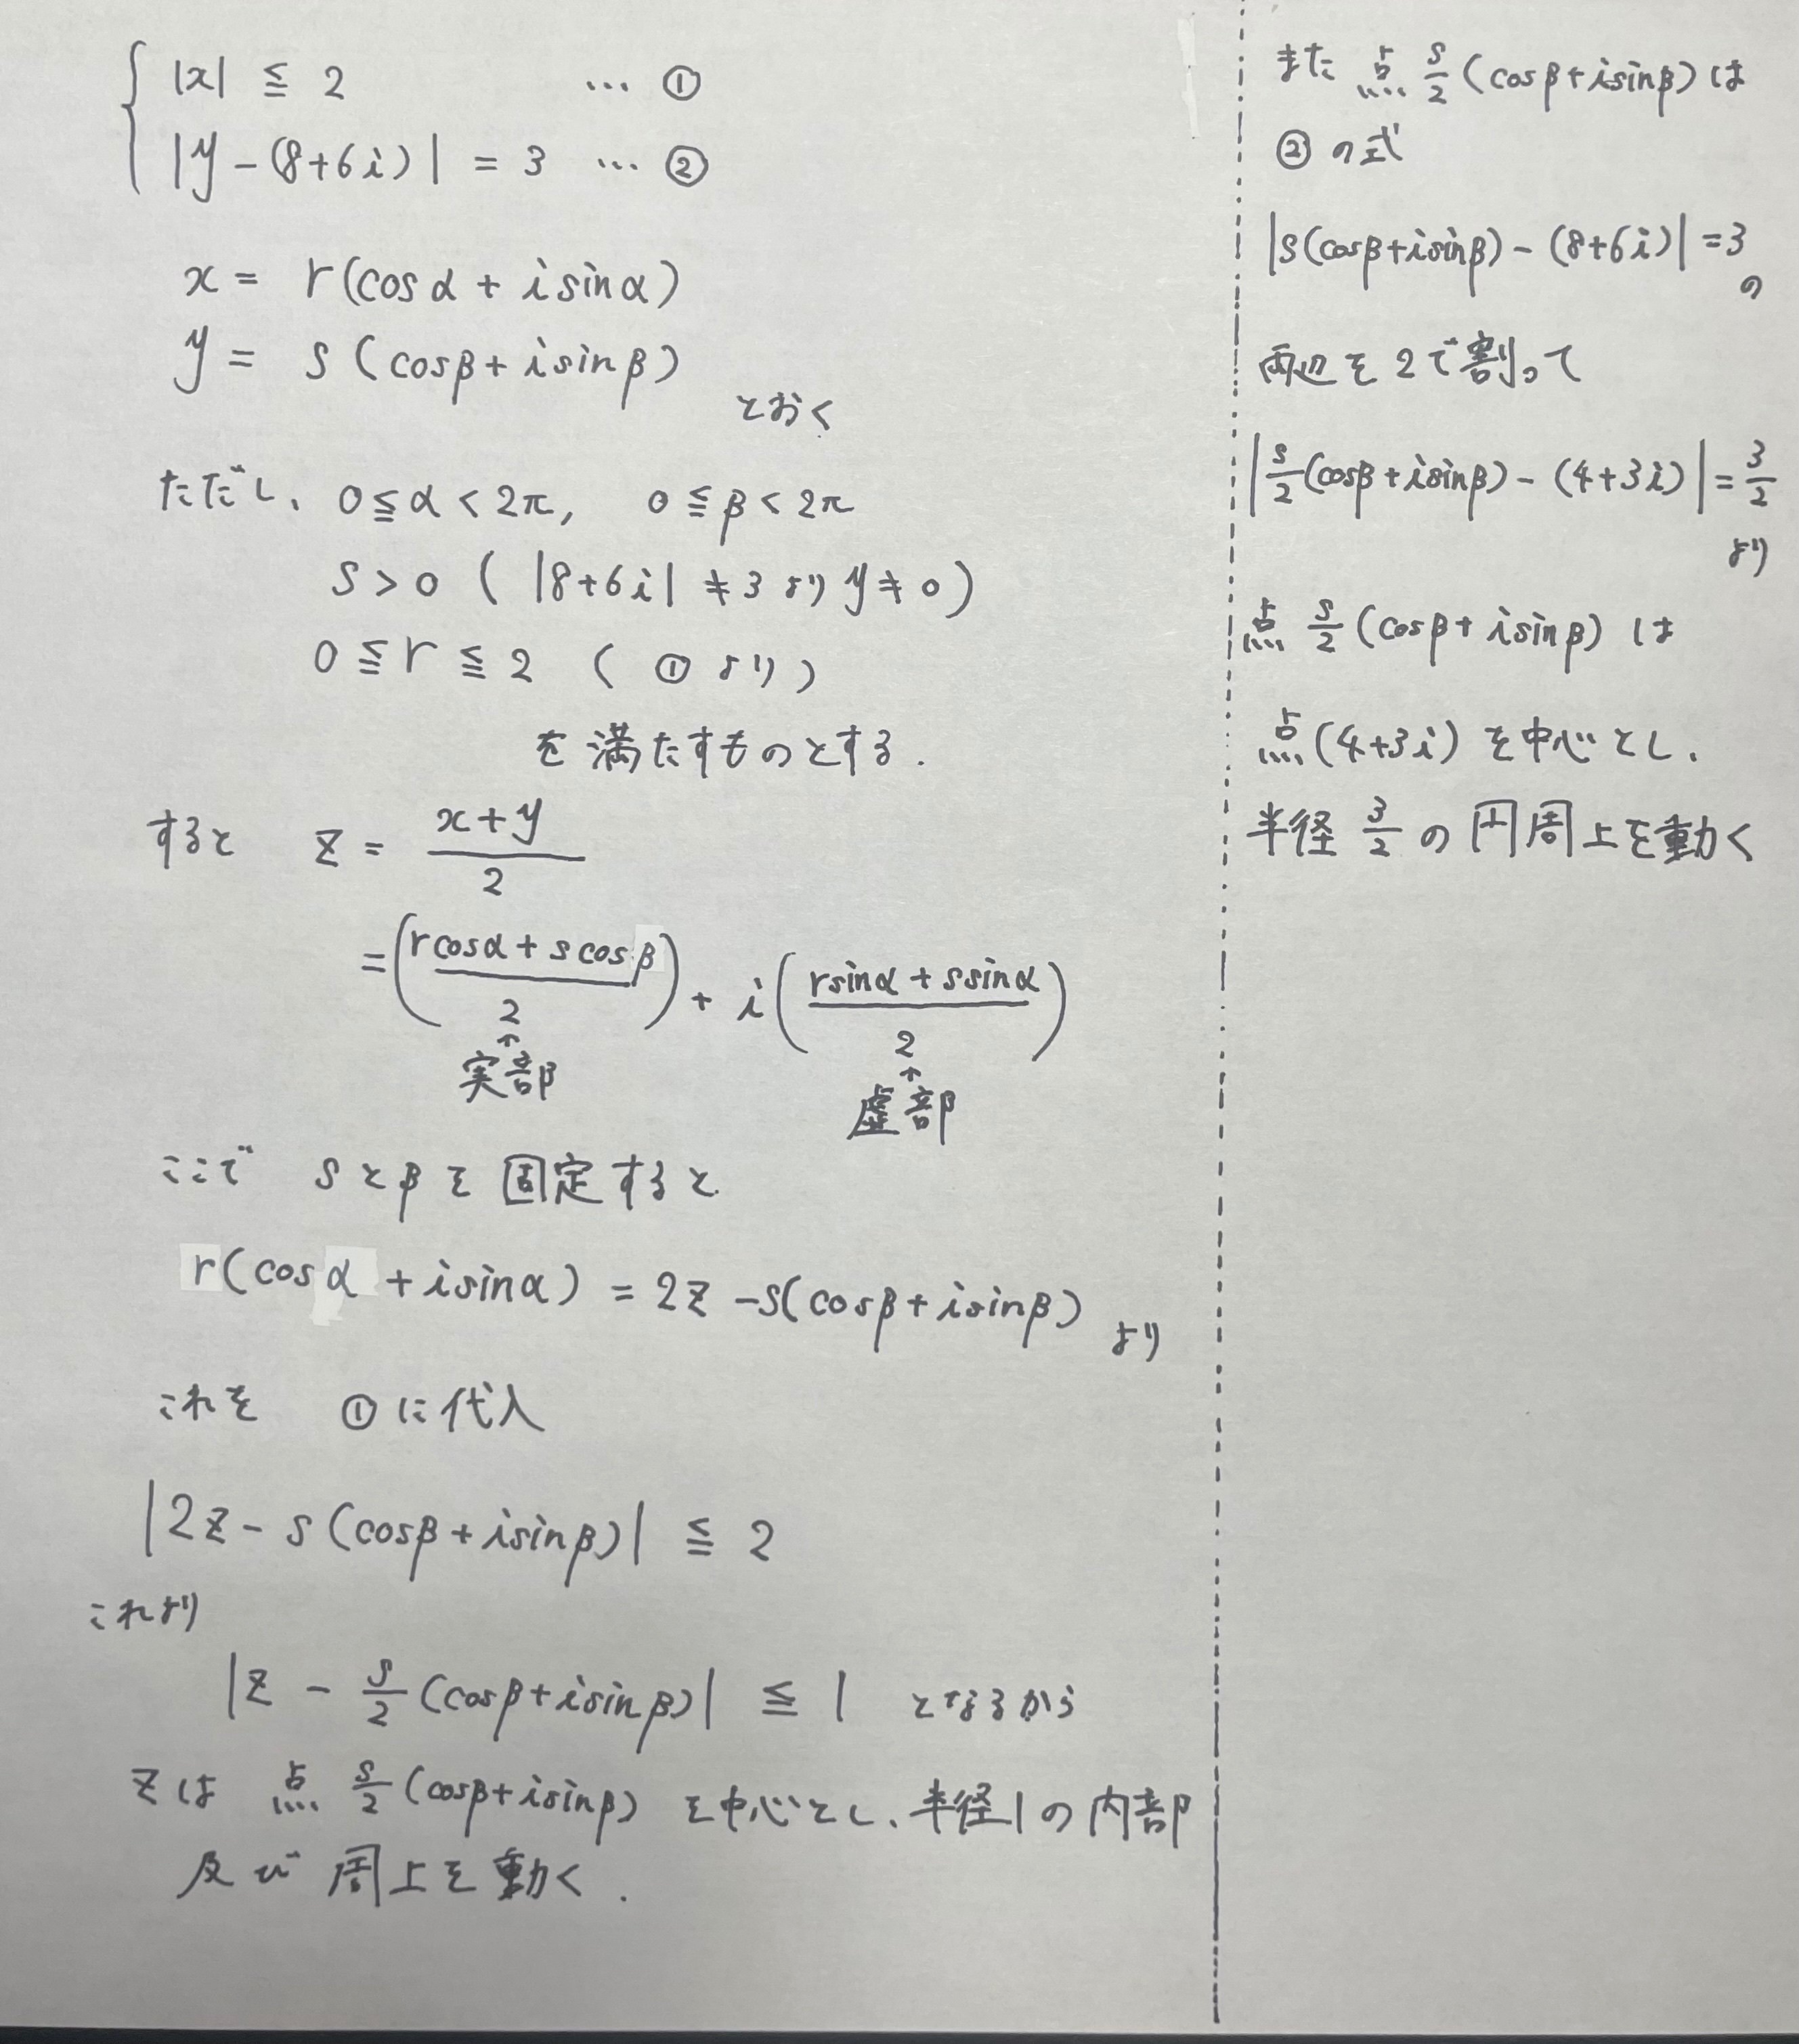 |x| ≦ 2 … ①
|y-(8+6i)| = 3 … ②
x = r(cosα + i sinα)
y = s(cosβ + i sinβ)
とおく
ただし、0≦α<2π, 0≦β<2π
s>0 ( |8+6i| ≠3 より y≠0 )
0≦r≦2 ( ① より )
を満たすものとする.
すると z = (x+y)/2
= ((rcosα + s cosβ)/2) + i((rsinα + ssinα)/2)
↑ ↑
実部 虚部
ここで sとβを固定すると
r(cosα + i sinα) = 2z - s(cosβ + i sinβ) より
これを ①に代入
|2z - s(cosβ + i sinβ)| ≦ 2
これより
|z - s/2(cosβ + i sinβ)| ≦ 1 となるから
zは 点 s/2(cosβ+i sinβ) を中心とし、半径1の内部
及び 周上を動く.
また 点 s/2(cosβ+i sinβ) は
② の式
|s(cosβ+i sinβ) - (8+6i)| = 3
の
両辺を2で割って
|s/2(cosβ+i sinβ) - (4+3i)| = 3/2
より
点 s/2(cosβ+ i sinβ) は
点(4+3i) を中心とし、
半径 3/2 の円周上を動く